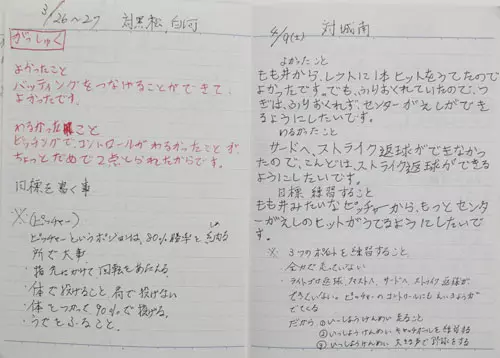 3/26〜27 対黒松,白河
がっしゅく
よかったこと
バッティングをつなげることができて
よかったです。
わるかったこと
ピッチングで、コントロールがわるかったことです。
ちょっとだめで2点とられたからです。
目標を書く事
※(ピッチャー)
ピッチャーというポジションは、80%勝率を
所で大事
・指先にかけて回転をあたえる
・体で投げること 肩で投げない
・体をつかって90%で投げる。
・うでをふること。
4/9(土) 対城南
よかったこと
もも井から、レフトに1本ヒットをうてたので
よかったです。でも、ふりおくれていたので、つ
ぎは、ふりおくれず、センターがえしができ
るようにしたいです。
わるかったこと
サードへ、ストライク返球ができなかっ
たので、こんどは、ストライク返球ができる
ようにしたいです。
目標 練習すること
もも井みたいなピッチャーから、もっとセンタ
ーがえしのヒットがうてるようにしたいで
す。
※ 3つの木を練習すること
・全力で走っていない
・ライトゴロ返球、ファースト、サードへ、ストライク返球が
できていない。ピッチャーのコントロールにもえいきょうが
でてくる
だから ①いっしょうけんめい走ること
②いっしょうけんめいキャッチボールを練習する
③いっしょうけんめい大きな声で野球をする